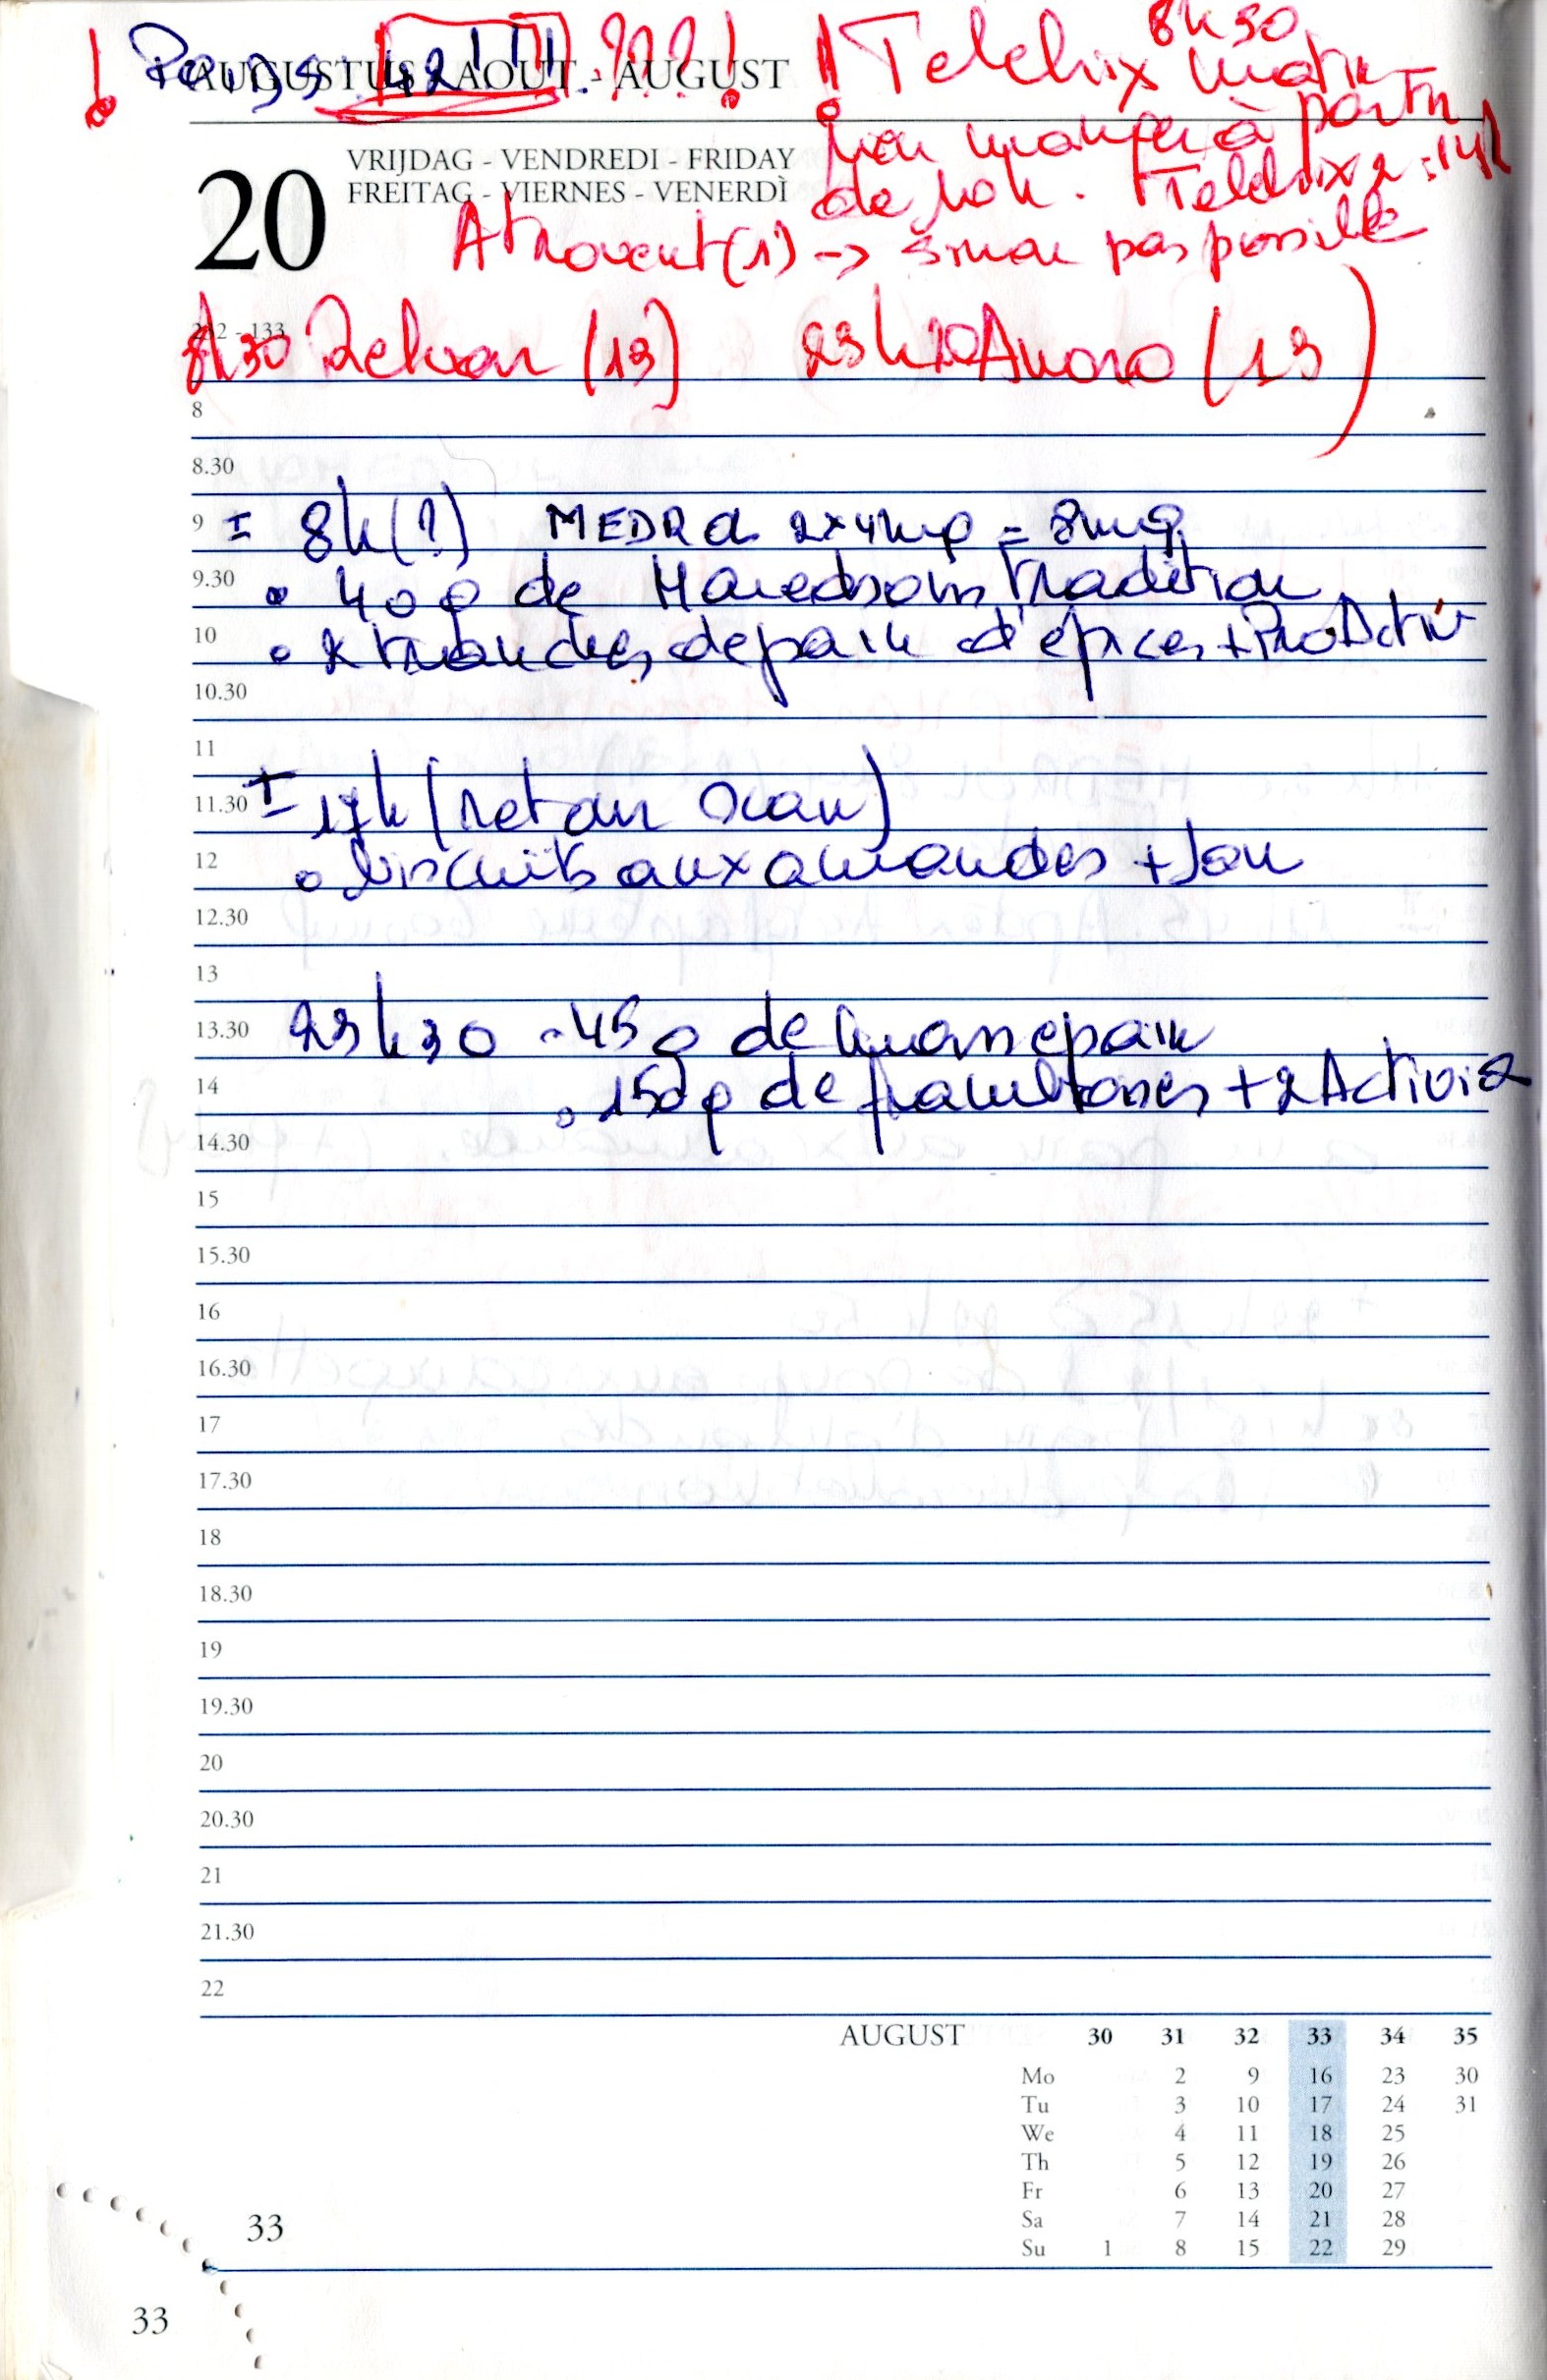 ! Poids 42!!! ???! ! Telebrix 8h30 matin
AUGUSTUS - AOUT - AUGUST
manger à partir
20
VRIJDAG - VENDREDI - FRIDAY
FREITAG - VIERNES - VENERDÌ
de 10h. Telebrix 2 : 14h
Atrovent (1) -> sinon pas possible
232 - 133
8h30 Relvar (13) 23h20 Anoro (13)
8
8.30
9 ± 8h(?) MEDROL 2x4mg = 8mg
9.30 • 40g de Maredsous Tradition
10 • 2 tranches de pain d'épices + ProActiv
10.30
11
11.30 ± 17h (retour Scan)
12 • biscuits aux amandes +
12.30
13
13.30 23h30 • 45g de
14 • 150g de framboises + 2 Activia
14.30
15
15.30
16
16.30
17
17.30
18
18.30
19
19.30
20
20.30
21
21.30
22
AUGUST 30 31 32 33 34 35
Mo 2 9 16 23 30
Tu 3 10 17 24 31
We 4 11 18 25
Th 5 12 19 26
Fr 6 13 20 27
Sa 7 14 21 28
Su 1 8 15 22 29
33
33